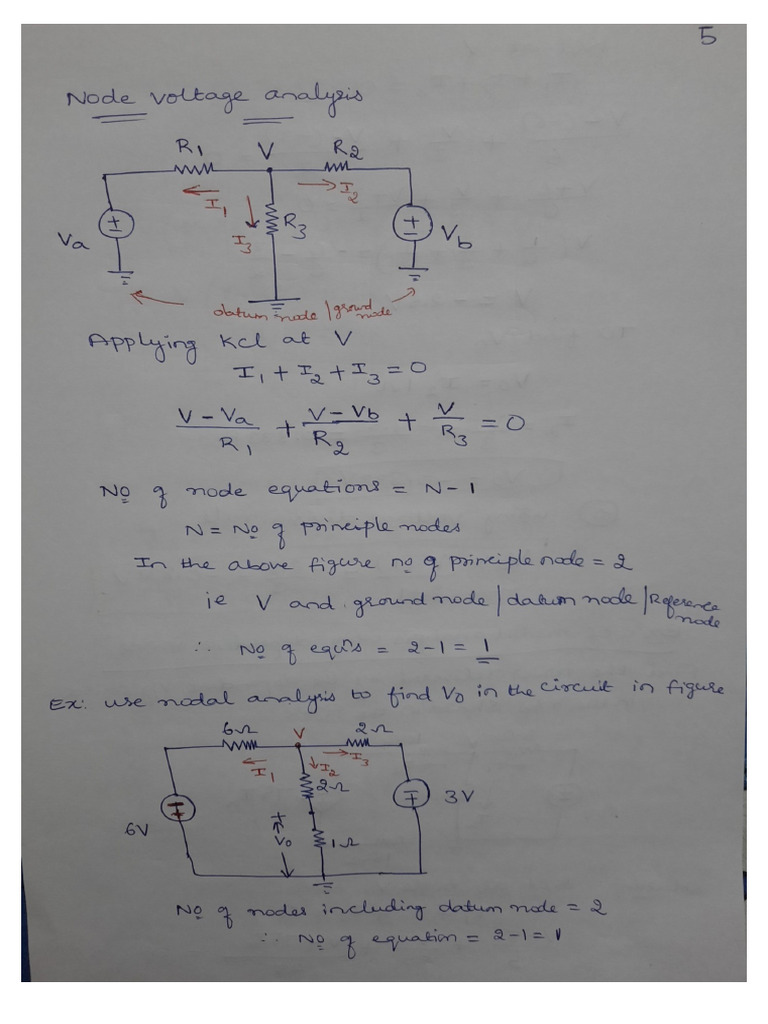 5
Node voltage analysis
R1 V R2
I1 I2
I3 R3
Va Vb
datum node / ground node
Applying Kcl at V
I1 + I2 + I3 = 0
V - Va / R1 + V - Vb / R2 + V / R3 = 0
No of node equations = N - 1
N = No of principle nodes
In the above figure no of principle node = 2
ie V and ground node / datum node / Reference node
∴ No of equ's = 2 - 1 = 1
Ex: use nodal analysis to find Vo in the circuit in figure
6Ω V 2Ω
I1 I2 I3
2Ω
6V + Vo 1Ω 3V
No of nodes including datum node = 2
∴ No of equation = 2 - 1 = 1